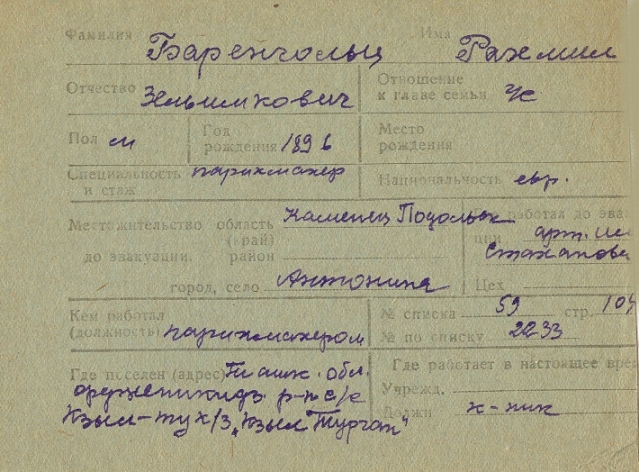 Фамилия Баренгольц Имя Рахмил
Отчество Зельманович Отношение к главе семьи
Пол м Год рождения 1896 Место рождения
Специальность и стаж парикмахер Национальность евр.
Местожительство область (край) Каменец Подольск работал до эва
до эвакуации. район арт. им
Стаханова
город, село Антонина Цех
Кем работал (должность) парикмахером № списка 59 стр. 104
№ по списку 2233
Где поселен (адрес) Ташк. обл. Где работает в настоящее вре
р-н с/с Учрежд.
Кзыл-ту к/з „Кзыл Турган" Должн к-ник